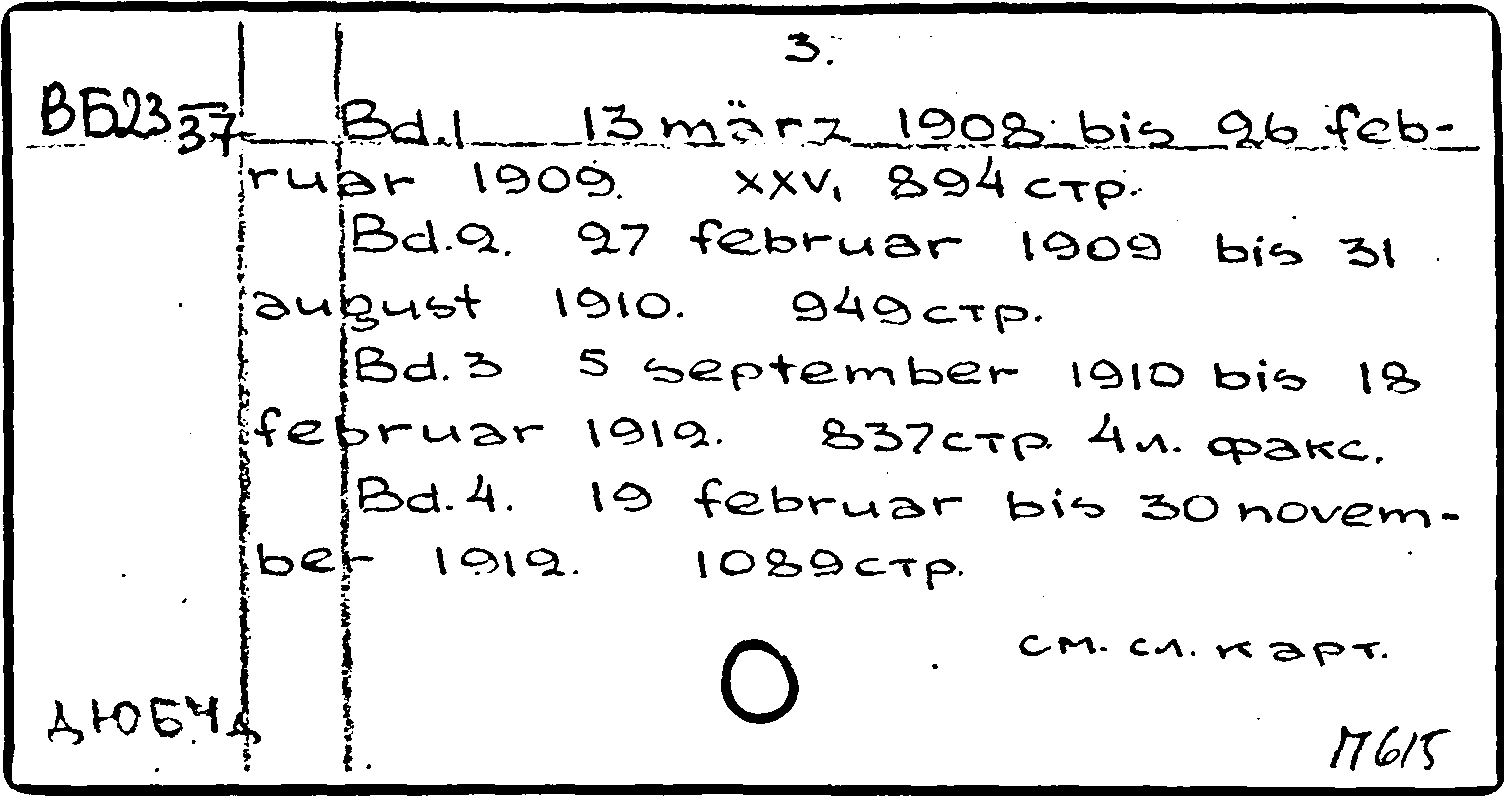 3.
ВБ23 37 Bd.1 13 märz 1908 bis 26 feb-
ruar 1909. XXV, 894 стр.
Bd.2. 27 februar 1909 bis 31
august 1910. 949 стр.
Bd.3 5 september 1910 bis 18
februar 1912. 837 стр. 4 л. факс.
Bd.4. 19 februar bis 30 novem-
ber 1912. 1089 стр.
см. сл. карт.
дЮБЧд
П615